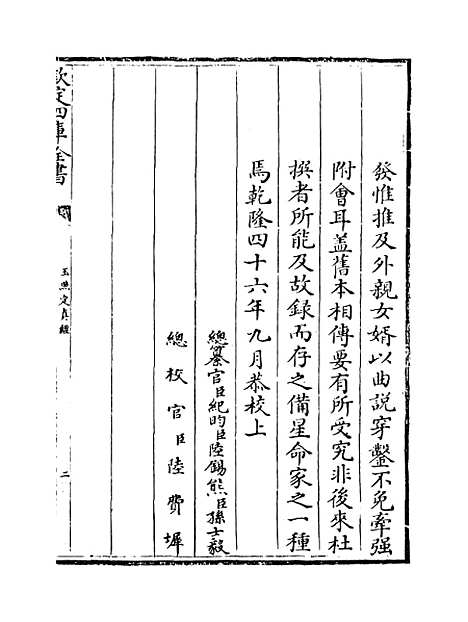 發惟推及外親女婿以曲説穿鑿不免牽强
附會耳盖舊本相傳要有所受究非後來杜
撰者所能及故録而存之備星命家之一種
焉乾隆四十六年九月恭校上
總纂官臣紀昀臣陸錫熊臣孫士毅
總校官臣陸費墀
欽定四庫全書
玉照定真經
二